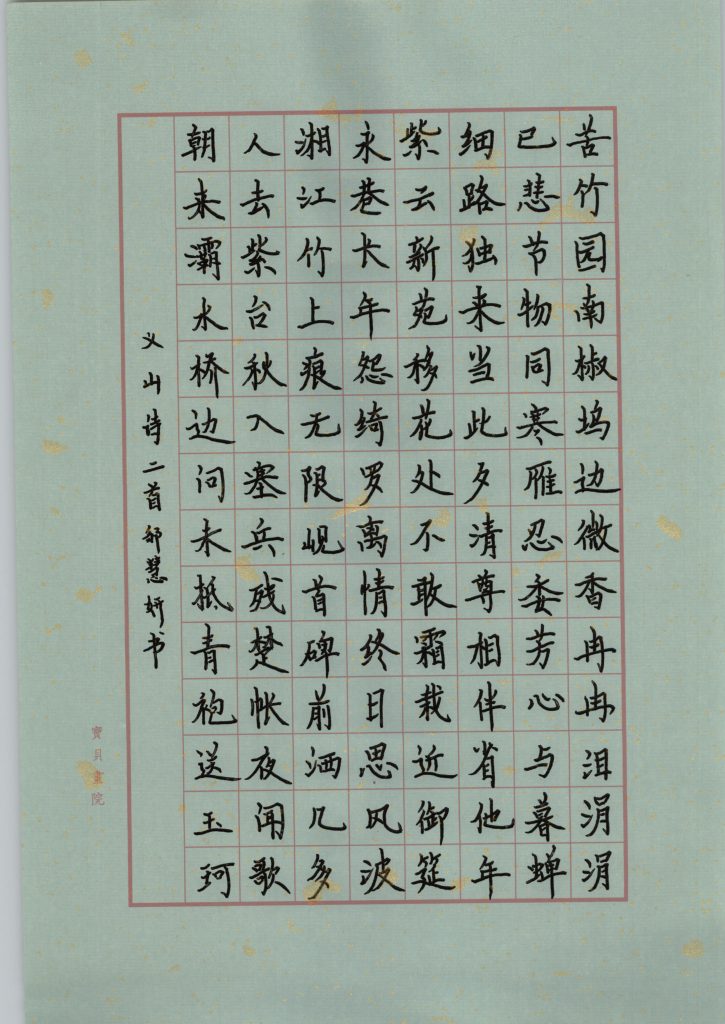 苦竹园南椒坞边微香冉冉泪涓涓
已悲节物同寒雁忍委芳心与暮蝉
细路独来当此夕清尊相伴省他年
紫云新苑移花处不敢霜栽近御筵
永巷长年怨绮罗离情终日思风波
湘江竹上痕无限岘首碑前洒几多
人去紫台秋入塞兵残楚帐夜闻歌
朝来灞水桥边问未抵青袍送玉珂
义山诗二首邹慧妍书
寶貝畫院